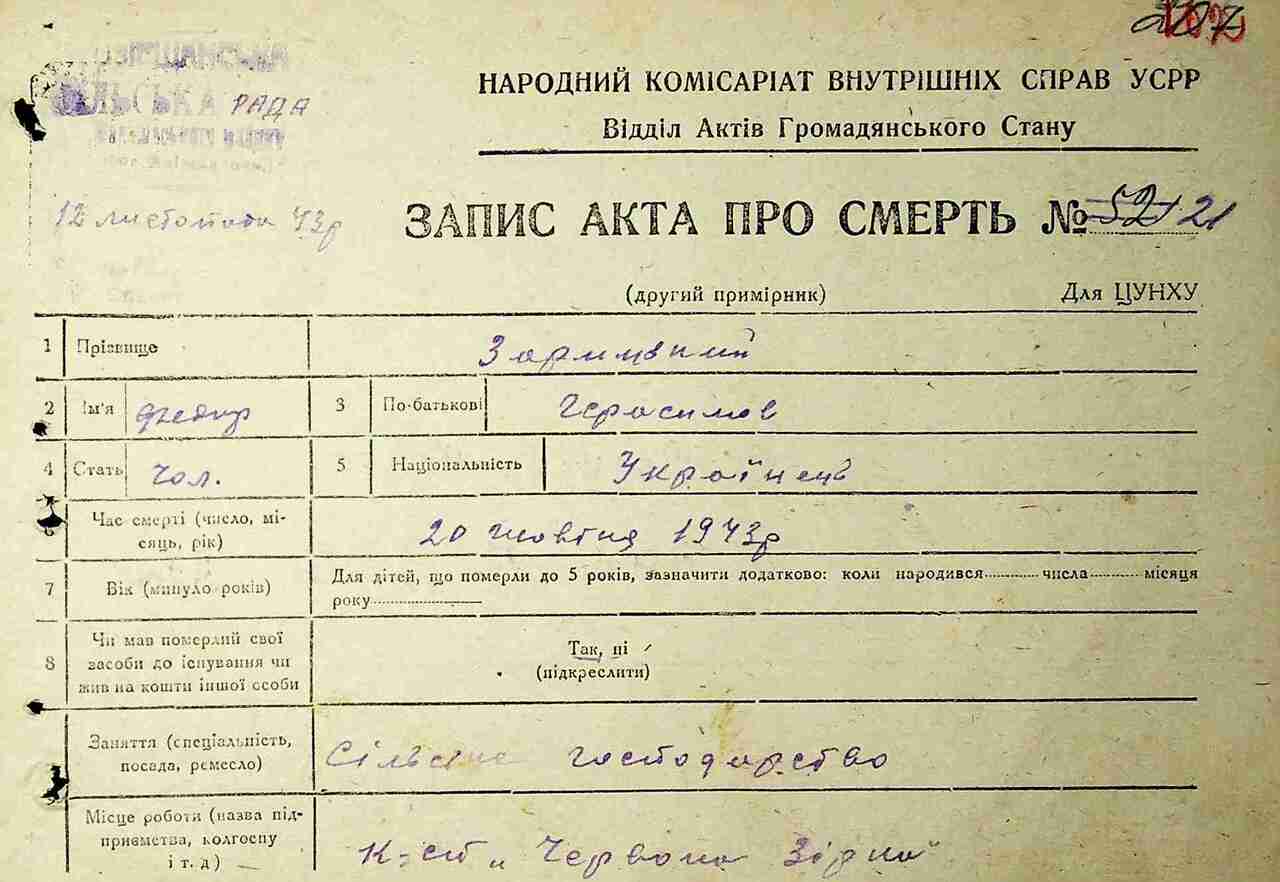 207
СІЛЬСЬКА РАДА
НАРОДНИЙ КОМІСАРІАТ ВНУТРІШНІХ СПРАВ УСРР
Відділ Актів Громадянського Стану
12 листопада 43р
ЗАПИС АКТА ПРО СМЕРТЬ № 52 21
(другий примірник) Для ЦУНХУ
1 Прізвище
2 Ім'я Федир 3 По-батькові Герасимов
4 Стать чол. 5 Національність Українець
6 Час смерті (число, мі-
сяць, рік) 20 жовтня 1943р
7 Вік (минуло років) Для дітей, що померли до 5 років, зазначити додатково: коли народився числа місяця
року
8 Чи мав померлий свої
засоби до існування чи
жив на кошти іншої особи
Так, ні
(підкреслити)
Заняття (спеціальність,
посада, ремесло) Сільське господарство
9 Місце роботи (назва під-
приємства, колгоспу
і т. д) К-сп „Червона Зірка"